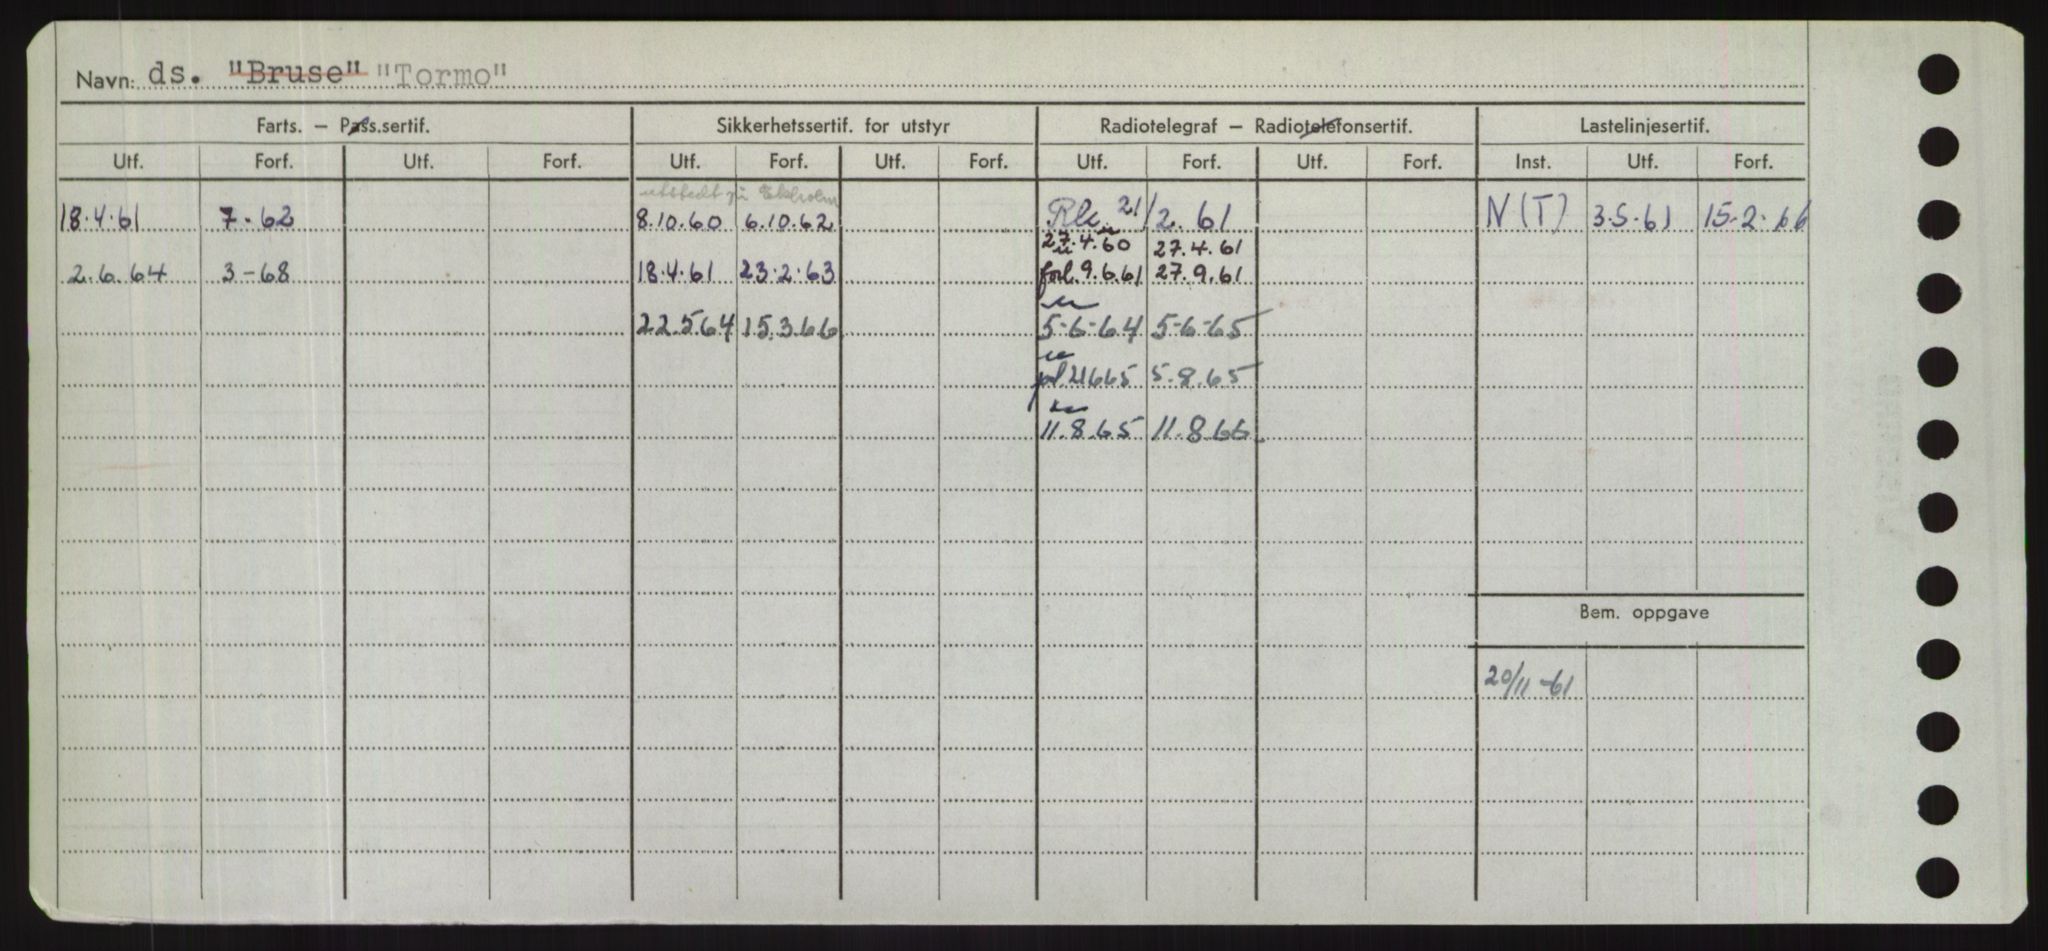 Navn: ds. "Bruse" "Tormo"
Farts. – Pass.sertif. Sikkerhetssertif. for utstyr Radiotelegraf – Radiotelefonsertif. Lastelinjesertif.
Utf. Forf. Utf. Forf. Utf. Forf. Utf. Forf. Utf. Forf. Utf. Forf. Inst. Utf. Forf.
utstedt
18.4.61 7-62 8.10.60 6.10.62 21/2.61 N(T) 3.5.61 15.2.66
27.4.60 27.4.61
2.6.64 3-68 18.4.61 23.2.63 forl. 9.6.61 27.9.61
22.5.64 15.3.66 5-6-64 5-6-65
5.8.65
11.8.65 11.8.66
Bem. oppgave
20/11-61